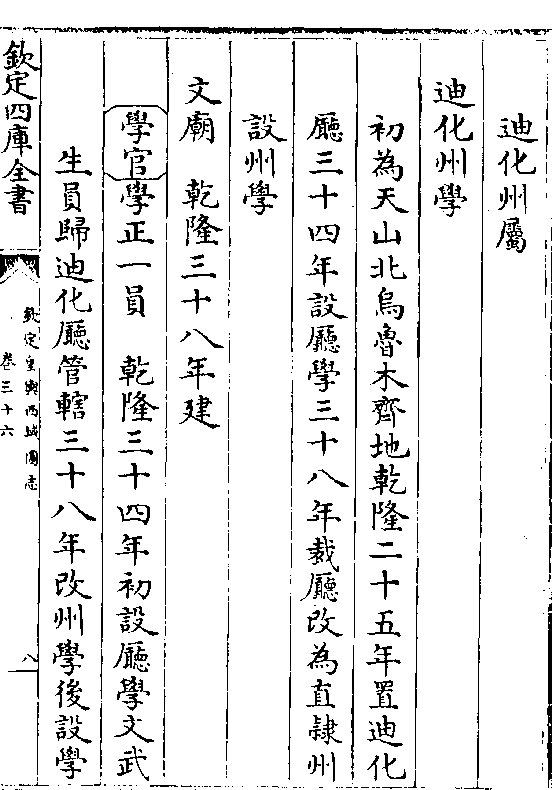 迪化州屬
迪化州學
初為天山北烏魯木齊地乾隆二十五年置迪化
廳三十四年設廳學三十八年裁廳改為直隸州
設州學
文廟　乾隆三十八年建
學官學正一員　乾隆三十四年初設廳學文武
生員歸迪化廳管轄三十八年改州學後設學
欽定四庫全書
欽定皇輿西域圖志
卷三十六
八